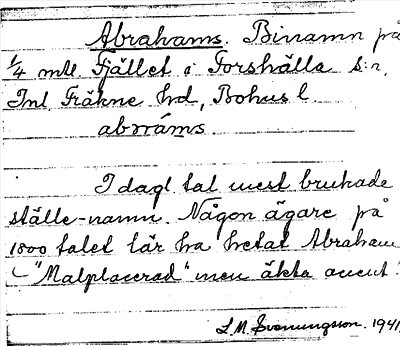 Abrahams. Binamn på
1/4 mtl Fjället i Forshälla s:n,
Inl Fräkne hd, Bohus l
abráms
I dagl tal mest brukade
ställe-namn. Någon ägare på
1800 talet lär ha hetat Abraham
"Malplacerad" men äkta accent!
L.M. Svenungsson. 1941